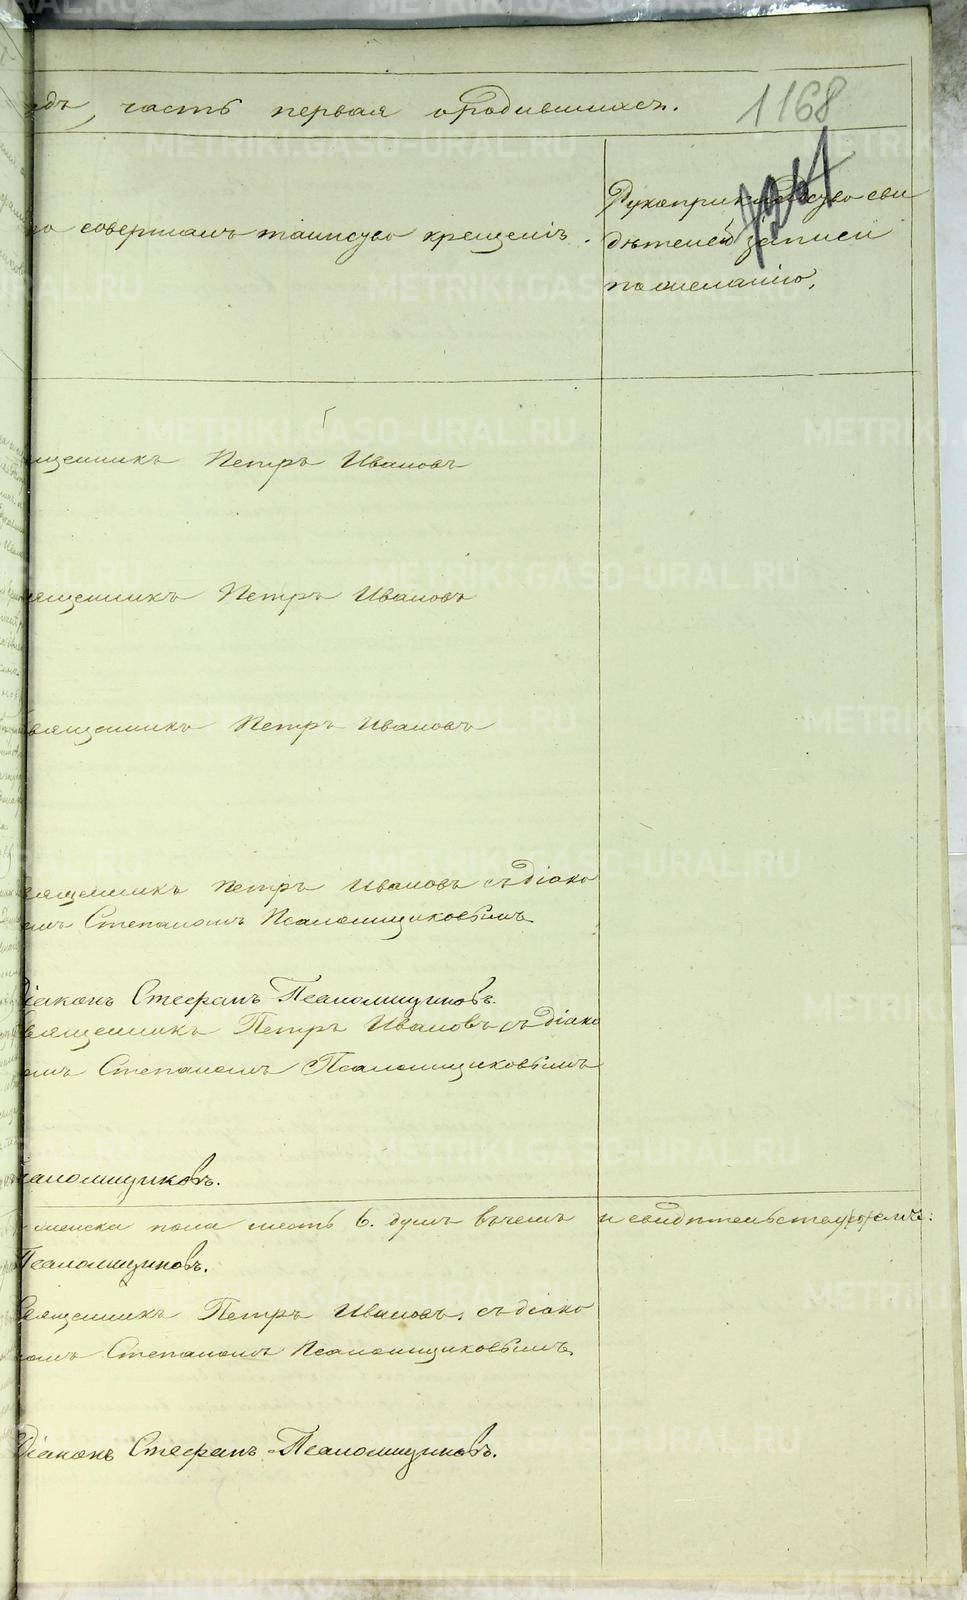 одъ, часть первая ородившихся.
1168
то совершалъ таинство крещенія.
Рукоприкладство сви
дѣтелей записи
пожеланію.
ященникъ Петръ Ивановъ
вященникъ Петръ Ивановъ
Священникъ Петръ Ивановъ
вященникъ Петръ Ивановъ съ діако
омъ Степаномъ Псаломщиковымъ
Діаконъ Стефанъ Псаломщиковъ.
вященникъ Петръ Ивановъ съ діако
омъ Степаномъ Псаломщиковымъ
саломщиковъ.
женска пола шесть 6. душъ вчемъ и свидѣтельствуемъ:
Псаломщиковъ.
Священникъ Петръ Ивановъ, съ діако
номъ Степаномъ Псаломщиковымъ.
Діаконъ Стефанъ Псаломщиковъ.
METRIKI.GASO-URAL.RU